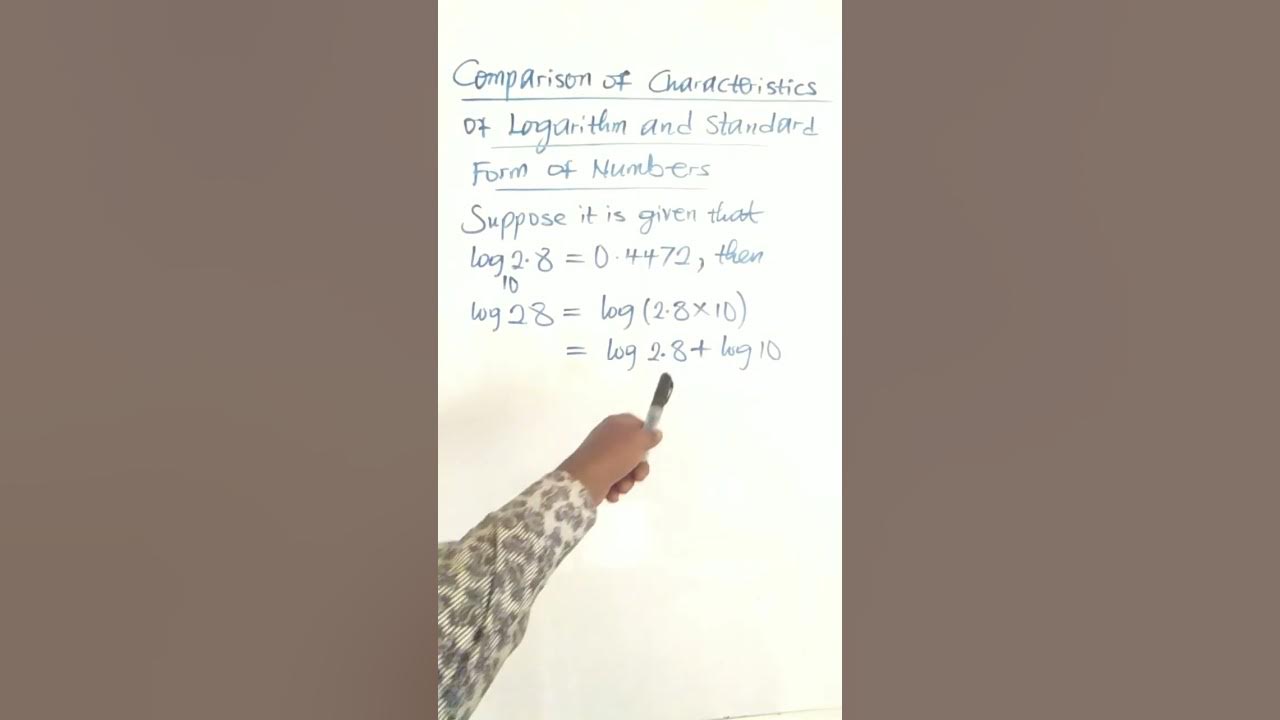 Comparison of Characteristics
of Logarithm and Standard
Form of Numbers
Suppose it is given that
log₁₀2.8 = 0.4472, then
log 28 = log (2.8×10)
= log 2.8 + log 10